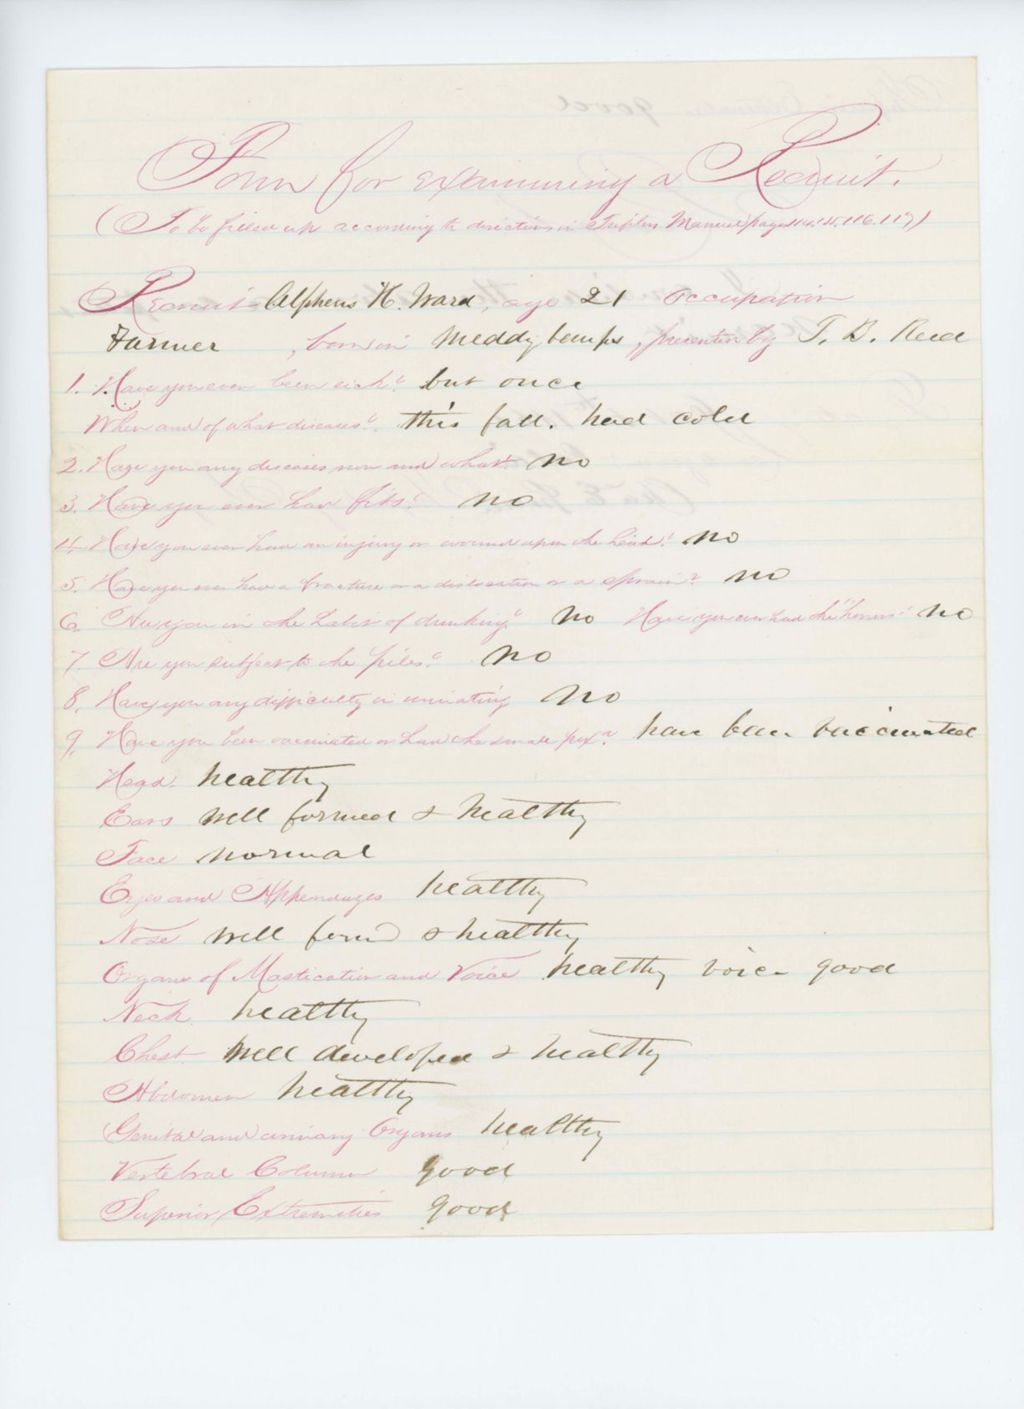 Form for examining a Recruit.
(To be filled up according to directions in Triplers Manuel pages 114. 115. 116. 117)
Recruit Alpheus H. Ward, age 21 Occupation
Farmer, born in Meddybemps, presented by T. B. Reed
1. Have you ever been sick? but once
When and of what disease? this fall. had cold
2. Have you any diseases now and what? no
3. Have you ever had fits? no
4. Have you ever had an injury or wound upon the head? no
5. Have you ever had a fracture or a dislocation or a sprain? no
6. Are you in the habit of drinking? no Have you ever had the "horrors"? no
7. Are you subject to the piles? no
8. Have you any difficulty in urinating no
9. Have you been vaccinated or had the small pox? have been vaccinated
Head. healthy
Ears well formed & healthy
Face normal
Eyes and Appendages healthy
Nose well formd & healthy
Organs of Mastication and Voice healthy voice good
Neck healthy
Chest well developed & healthy
Abdomen healthy
Genital and urinary Organs healthy
Vertebral Column good
Superior Extremities good